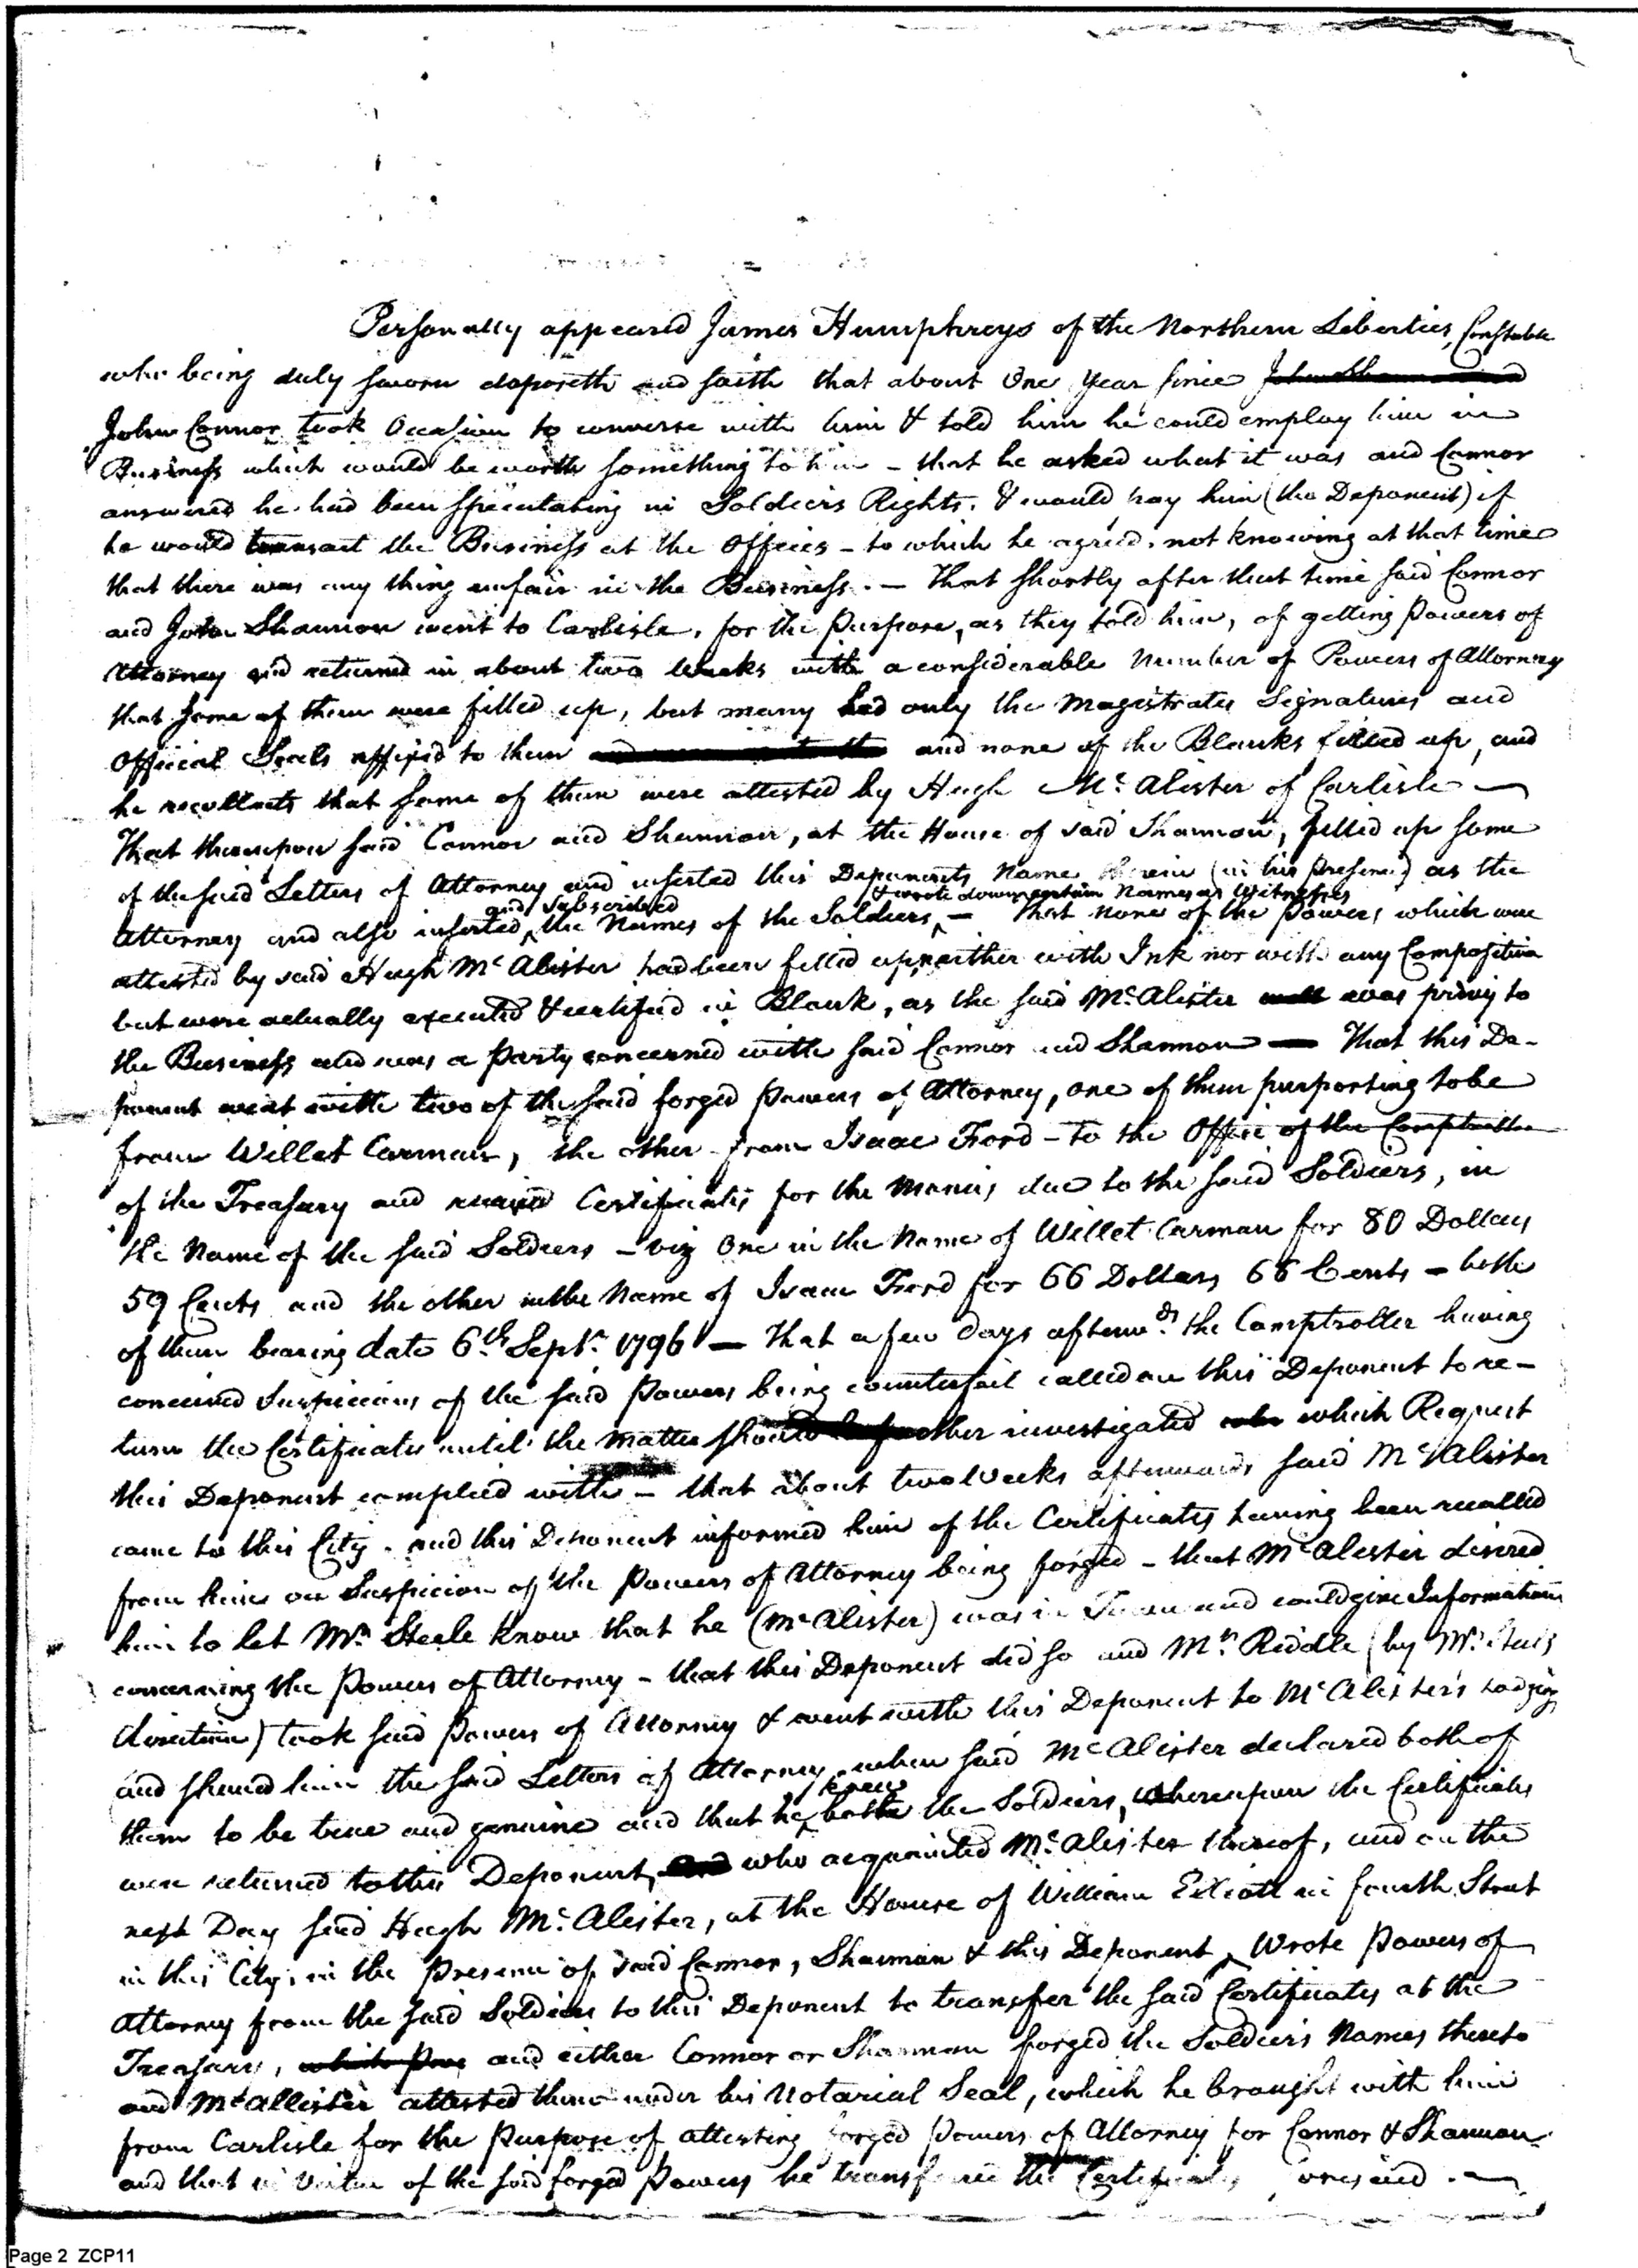 Personally appeared James Humphreys of the Northern Liberties, Constable
who being duly sworn deposeth and saith that about One Year since
John Connor took Occasion to converse with him & told him he could employ him in
Business which would be worth something to him - that he asked what it was and Connor
answered he had been speculating in Soldiers Rights, & would pay him (the Deponent) if
he would transact the Business at the Offices - to which he agreed, not knowing at that time
that there was any thing unfair in the Business. - That shortly after that time said Connor
and John Shannon went to Carlisle, for the Purpose, as they told him, of getting Powers of
Attorney and returned in about two Weeks with a considerable Number of Powers of Attorney
that some of them were filled up, but many had only the Magistrates Signatures and
Official Seals affixed to them and none of the Blanks filled up, and
he recollects that some of them were attested by Hugh Mc. Alister of Carlisle —
That thereupon said Connor and Shannon, at the House of said Shannon, filled up some
of the said Letters of Attorney and inserted this Deponents Name therein (in his presence) as the
and subscribed & wrote down certain Names as Witnesses
Attorney and also inserted the Names of the Soldiers, - that none of the Powers which were
attested by said Hugh Mc Alister had been filled up neither with Ink nor with any Composition
but were actually executed & certified in Blank, as the said Mc. Alister was privy to
the Business and was a Party concerned with said Connor and Shannon — That this De-
ponent went with two of the said forged Powers of Attorney, one of them purporting to be
from Willet Carman, the other from Isaac Ford - to the Office of the Comptroller
of the Treasury and received Certificates for the Monies due to the said Soldiers, in
the Name of the said Soldiers - viz One in the Name of Willet Carman for 80 Dollars
59 Cents and the other in the Name of Isaac Ford for 66 Dollars 66 Cents - both
of them bearing date 6th Septr. 1796 — That a few Days afterwds. the Comptroller having
conceived Suspicions of the said Powers being counterfeit called on this Deponent to re-
turn the Certificates until the matter should be further investigated which Request
this Deponent complied with - that about two Weeks afterwards said Mc Alister
came to this City, and this Deponent informed him of the Certificates having been recalled
from him on Suspicion of the Powers of Attorney being forged - that Mc Alister desired
him to let Mr. Steele know that he (Mc Alister) was in Town and could give Information
concerning the Powers of Attorney - that this Deponent did so and Mr. Riddle (by Mr. Steele's
direction) took said Powers of Attorney & went with this Deponent to Mc Alister's Lodging
and shewed him the said Letters of Attorney, when said Mc Alister declared both of
knew
them to be true and genuine and that he both the Soldiers, whereupon the Certificates
were returned to this Deponent, who acquainted Mc. Alister thereof, and on the
next Day said Hugh Mc. Alister, at the House of William Elliott in fourth Street
in this City, in the Presence of said Connor, Shannon & this Deponent, Wrote Powers of
Attorney from the said Soldiers to this Deponent to transfer the said Certificates at the
Treasury, and either Connor or Shannon forged the Soldiers Names thereto
and McAllister attested them under his Notarial Seal, which he brought with him
from Carlisle for the Purpose of attesting forged Powers of Attorney for Connor & Shannon
and that in Virtue of the said forged Powers he transferred the Certificates
Page 2 ZCP11